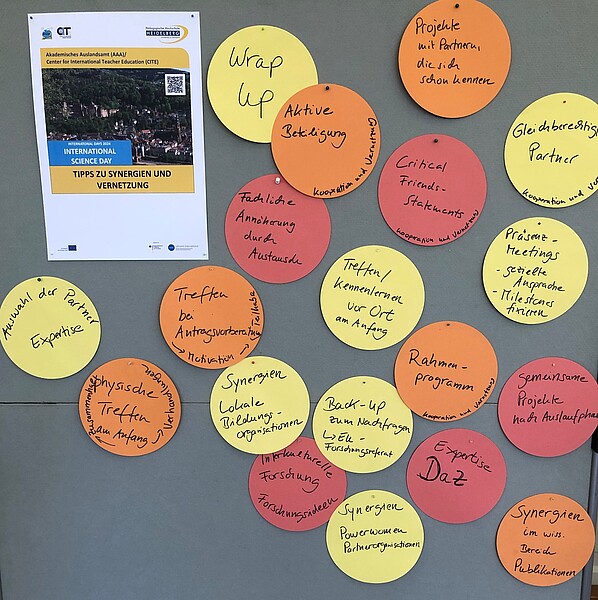 CIT
Pädagogische Hochschule
HEIDELBERG
Akademisches Auslandsamt (AAA)/
Center for International Teacher Education (CITE)
INTERNATIONAL DAYS 2024
INTERNATIONAL
SCIENCE DAY
TIPPS ZU SYNERGIEN UND
VERNETZUNG
Wrap
Up
Projekte
mit Partnern,
die sich
schon kennen
Aktive
Beteiligung
Kooperation und Vernetzung
Gleichberechtigt
Partner
Kooperation und Ver
Critical
Friends-
Statements
Kooperation und Vernetzung
Fachliche
Annäherung
durch
Austausch
Treffen/
Kennenlernen
vor Ort
am Anfang
Präsenz-
Meetings
- gezielte
Ansprache
- Milestones
fixieren
Auswahl der Partner
Expertise
Treffen
bei
Antragsvorbereitung
→ Motivation → Teilhabe
Rahmen-
programm
Kooperation und Vernetzung
physische
Treffen
am Anfang
→ Zusammenhalt
→ Verhandlungen
Synergien
Lokale
Bildungs-
organisationen
Back-Up
zum Nachfragen
↳ EU-
Forschungsreferat
gemeinsame
Projekte
nach Auslaufphase
Interkulturelle
Forschung
Forschungsideen
Expertise
DaZ
Synergien
Powerwomen
Partnerorganisationen
Synergien
im wiss.
Bereich
Publikationen